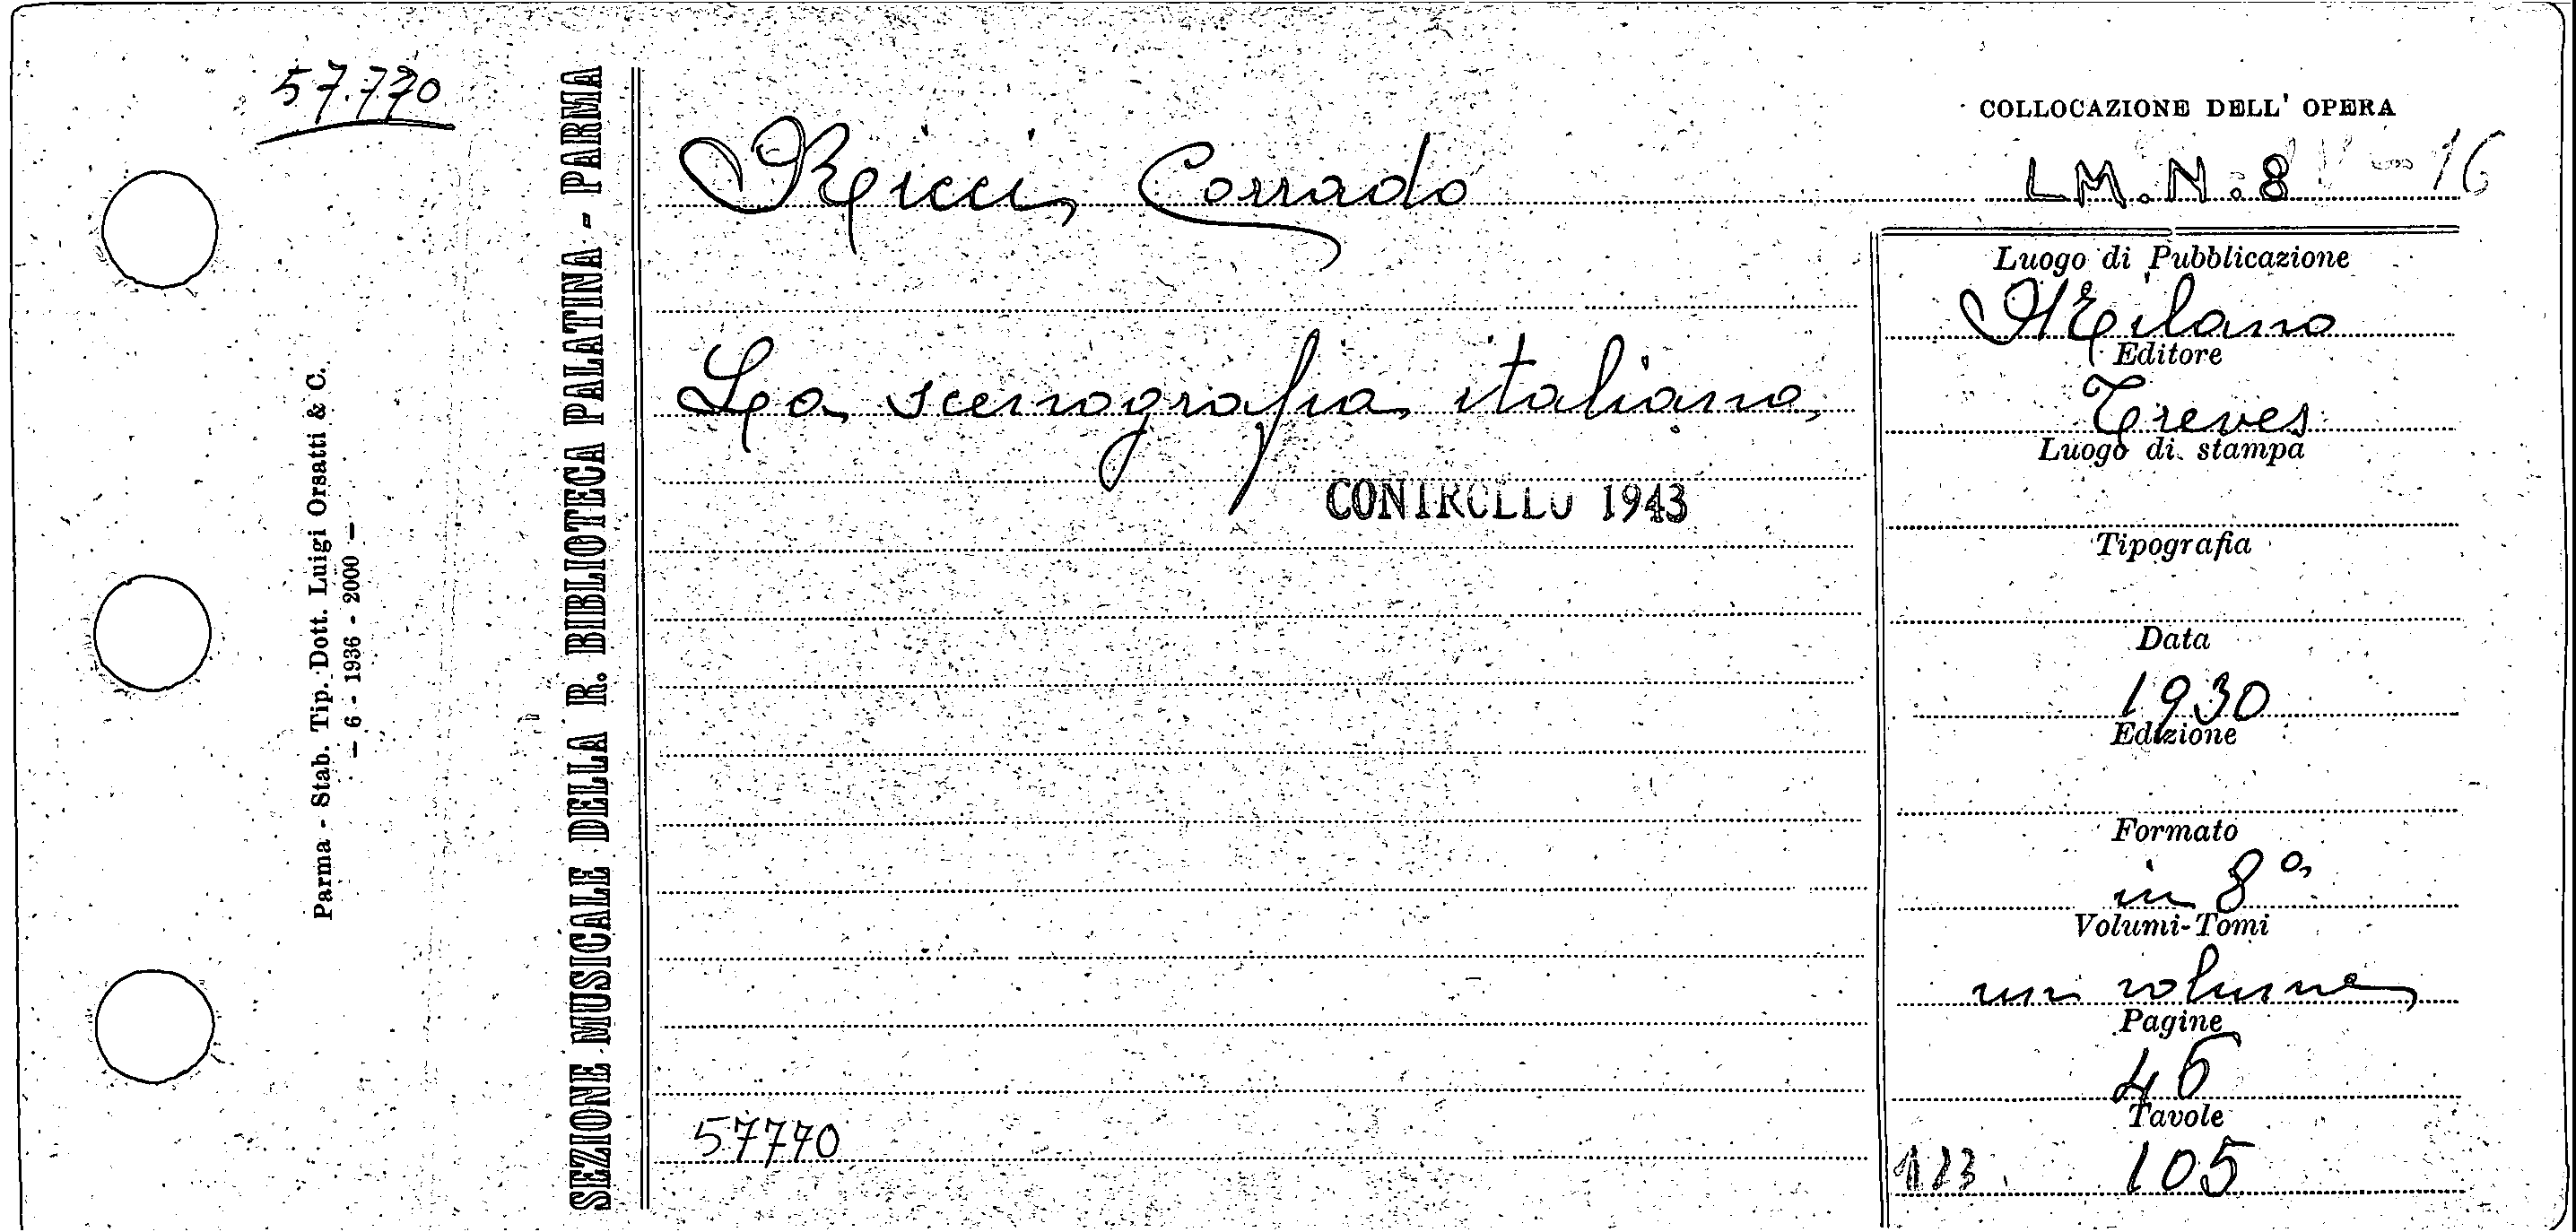 57.770
Parma - Stab. Tip. Dott. Luigi Orsatti & C.
- 6 - 1936 - 2000 -
SEZIONE MUSICALE DELLA R. BIBLIOTECA PALATINA - PARMA
Ricci, Corrado
La scenografia italiana,
CONTROLLO 1943
57770
COLLOCAZIONE DELL' OPERA
LM. N. 8 16
Luogo di Pubblicazione
Milano
Editore
Treves
Luogo di stampa
Tipografia
Data
1930
Edizione
Formato
in 8º
Volumi-Tomi
un volume,
Pagine
46
Tavole
123. 105